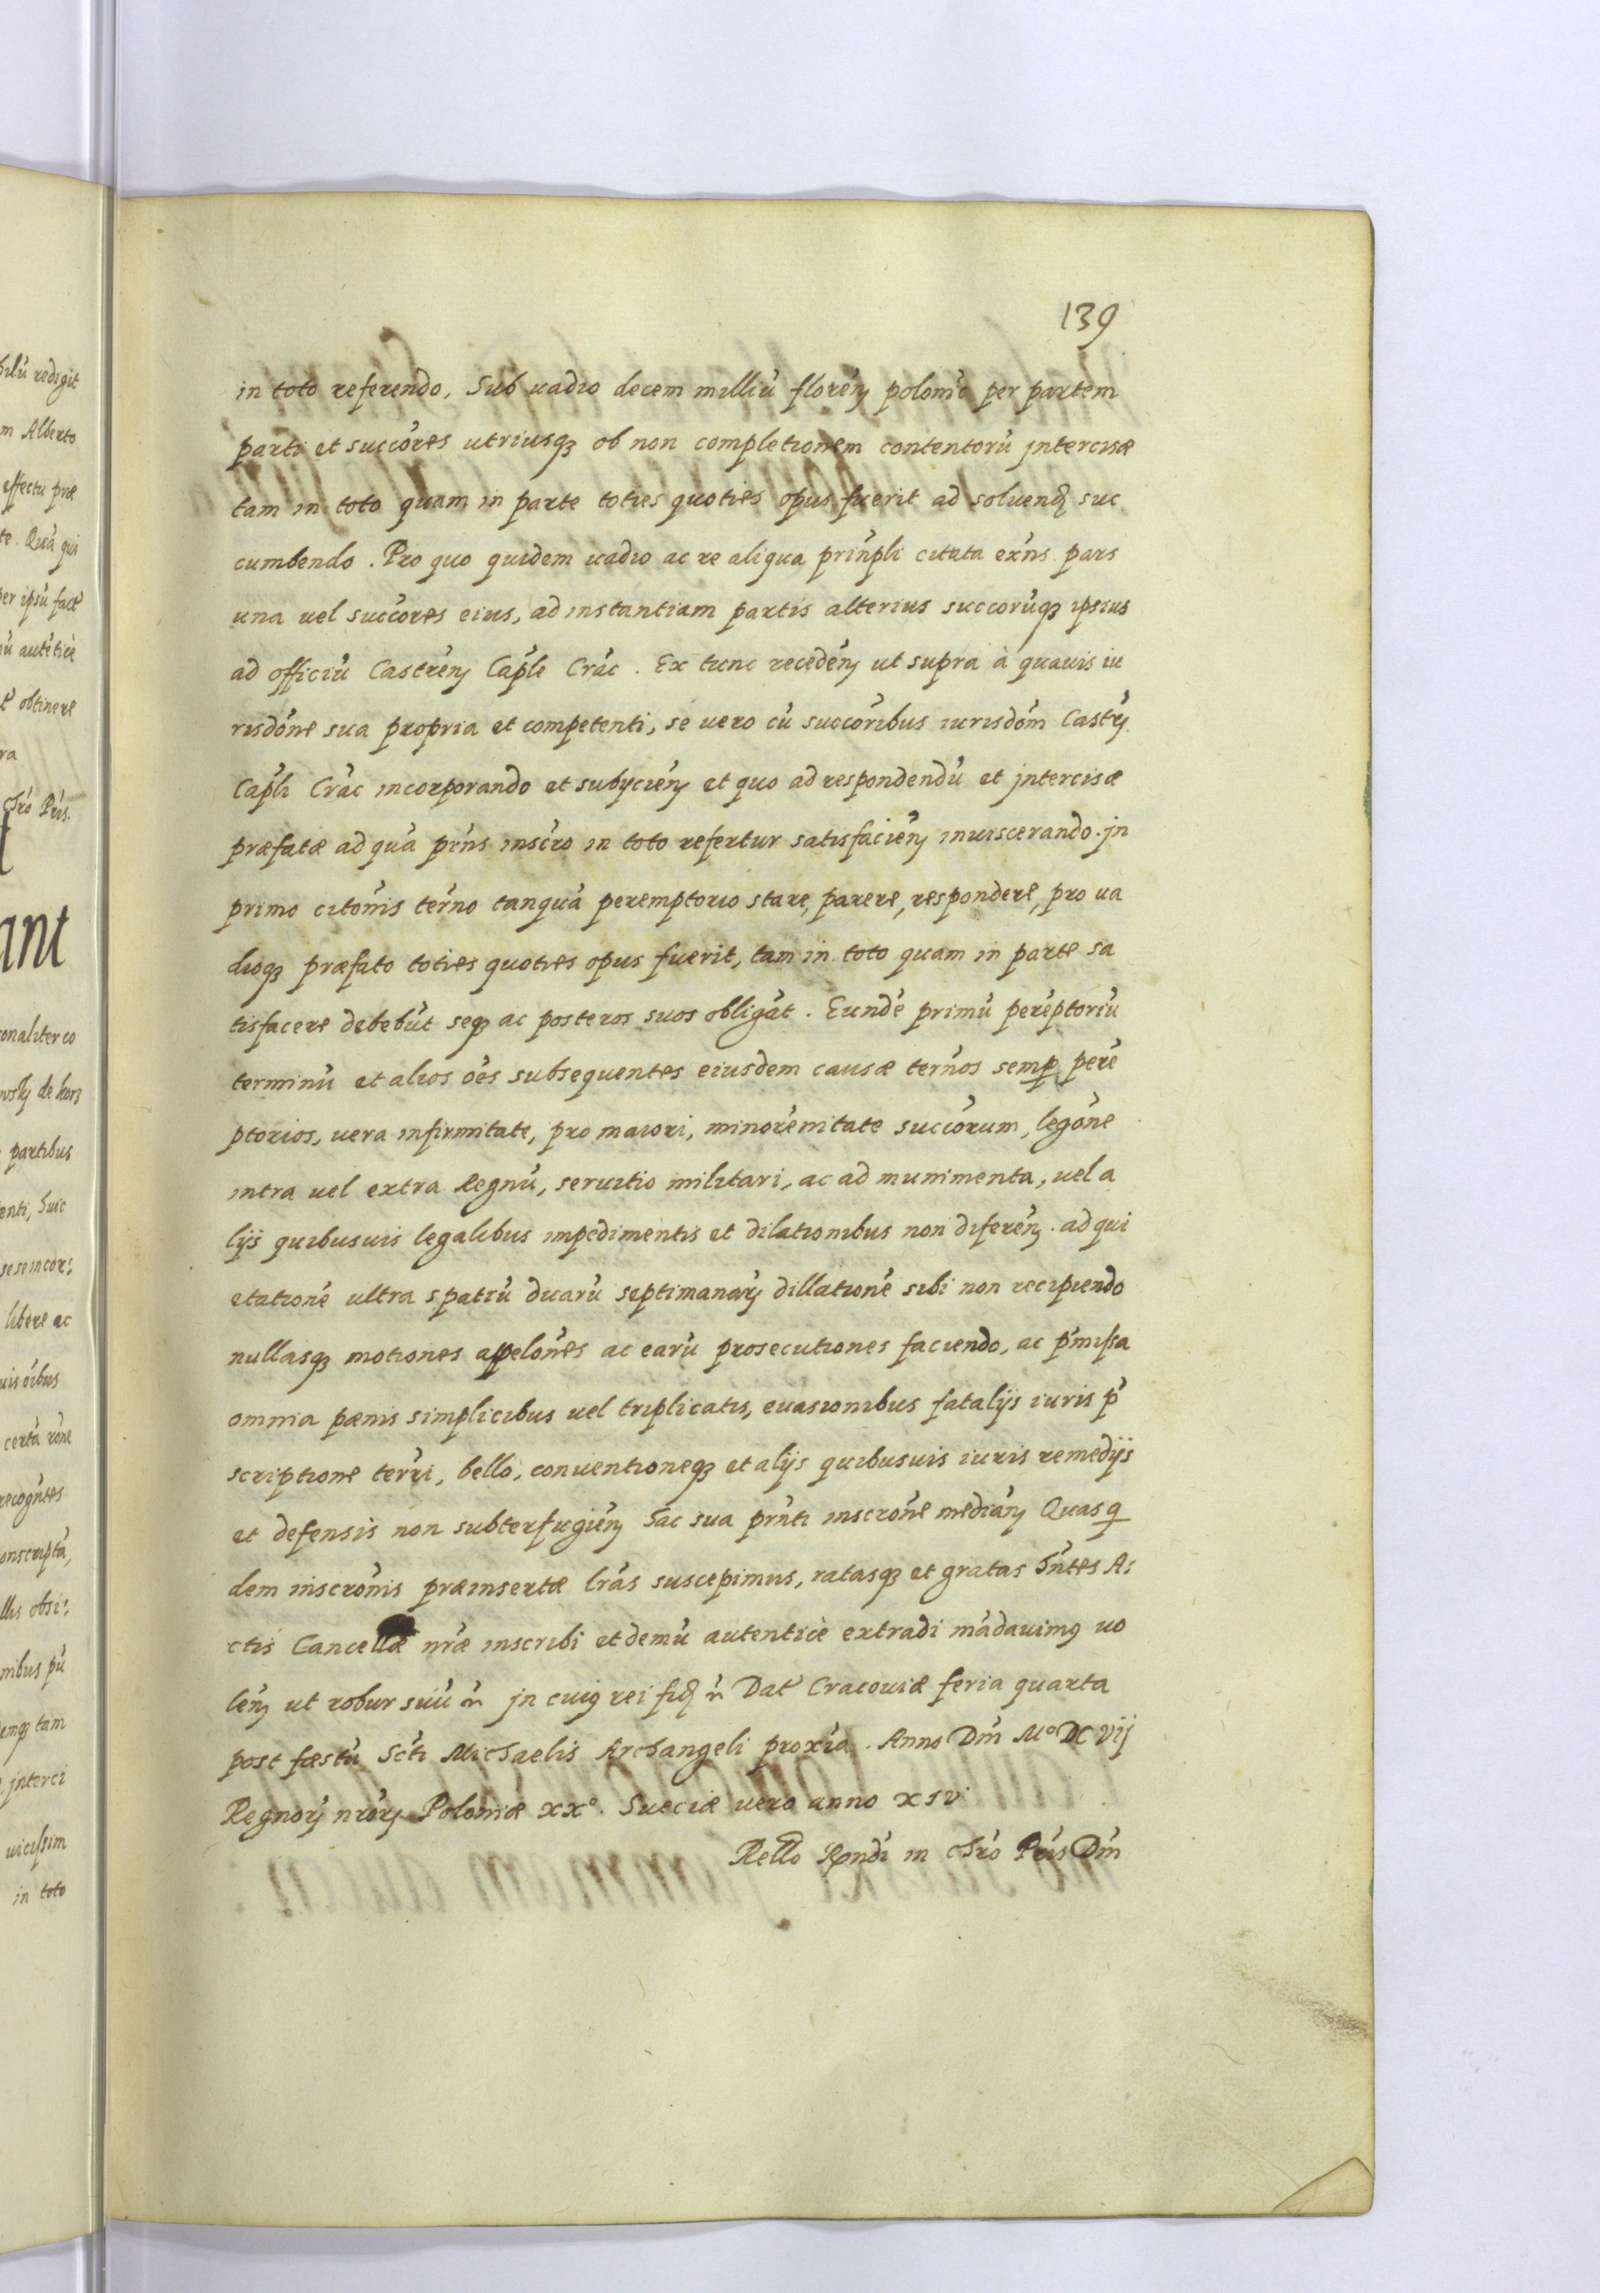 139
in toto referendo, Sub uadio decem milliū florēn̄ polonic̄ per partem
parti et succōres utriusqꝫ ob non completionem contentorū jntercisæ
tam in toto quam in parte toties quoties opus fuerit ad soluend̄ suc
cumbendo. Pro quo quidem uadio ac re aliqua prin̄pli citata ex̄ns pars
una uel succōres eius, ad instantiam partis alterius succorūqꝫ ipsius
ad officiū Castren̄ Cap̄le Crac̄. Ex tunc receden̄ ut supra à quauis iu
risdōne sua propria et competenti, se uero cū succōribus iurisdōm Castr̄
Cap̄li Crac̄ incorporando et subycien̄ et quo ad respondendū et jntercisæ
præfatæ ad quā pr̄ns inscr̄o in toto refertur satisfacien̄ inuiscerando. jn
primo citōnis ter̄no tanquā peremptorio stare, parere, respondere, pro ua
dioqꝫ præfato toties quoties opus fuerit, tam in toto quam in parte sa
tisfacere debebūt seqꝫ ac posteros suos obligāt. Eundē primū perēptoriū
terminū et alios oēs subsequentes eiusdem causæ ter̄nos semꝑ perē
ptorios, uera infirmitate, pro maiori, minorēnitate succōrum, legōne
intra uel extra Regnū, seruitio militari, ac ad munimenta, uel a
lijs quibusuis legalibus impedimentis et dilationibus non diferen̄. ad qui
etationē ultra spatiū duarū septimanar̄ dillationē sibi non recipiendo
nullasqꝫ motiones appelōnes ac earū prosecutiones faciendo, ac p̄missa
omnia pænis simplicibus uel triplicatis, euasionibus fatalijs iuris p̄
scriptione ter̄ri, bello, conuentioneqꝫ et alijs quibusuis iuris remedijs
et defensis non subterfugien̄ hac sua pr̄nti inscrōne median̄ Quas q̄
dem inscrōnis præinsertæ lr̄as suscepimus, ratasqꝫ et gratas hn̄tes A:
ctis Cancellæ nr̄æ inscribi et demū autenticè extradi mādauimꝰ uo
len̄ ut robur suū r̄ jn cuiꝰ rei fid̄ r̄ Dat̄ Cracouiæ feria quarta
post fæstū Sc̄ti Michaelis Archangeli prox̄ia. Anno Dn̄i M° DC Vij
Regnor̄ nrōr̄ Poloniæ xx°. Sueciæ uero anno xiv
Rello Rn̄di in chr̄o Pr̄is Dn̄i